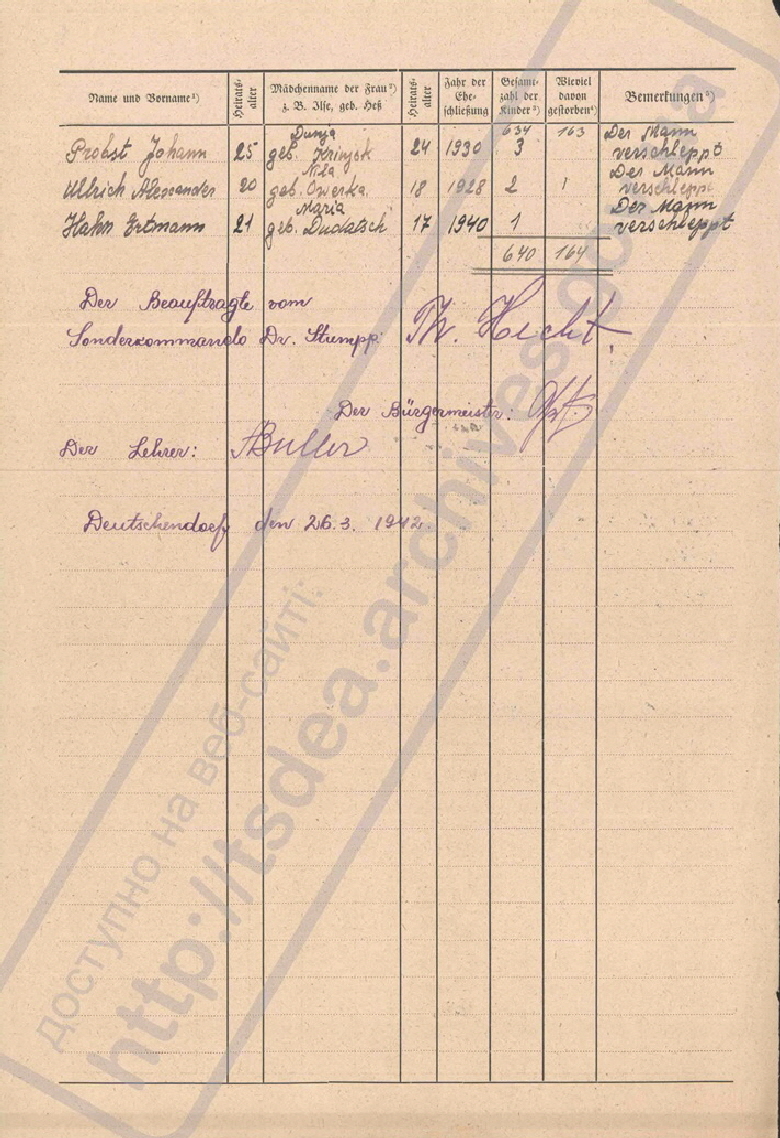 Name und Vorname¹) Heirats-alter Mädchenname der Frau²) z. B. Ilse, geb. Heß Heirats-alter Jahr der Ehe-schließung Gesamt-zahl der Kinder³) Wieviel davon gestorben⁴) Bemerkungen⁵)
Dunja 634 163 Der Mann
Probst Johann 25 geb. 24 1930 3 verschleppt
Nila Der Mann
Ullrich Alexander 20 geb. Owerka 18 1928 2 1 verschleppt
Maria Der Mann
Hahn Ertmann 21 geb. Dudatsch 17 1940 1 verschleppt
640 164
Der Beauftragte vom
Sonderkommando Dr. Stumpp: Th. Hecht.
Der Bürgermeistr:
Der Lehrer: ABuller
Deutschendorf den 26.3. 1942.
Доступно на веб-сайті:
http://tsdea.archives.gov.ua